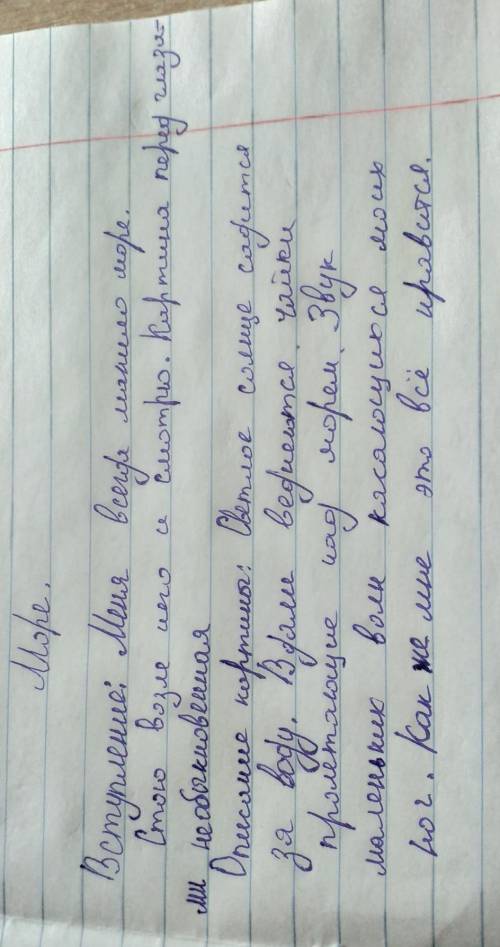 Море.
Вступление: Меня всегда манило море.
Стою возле него и смотрю. Картина перед глаза-
ми необыкновенная
Описание картины: Светлое солнце садится
зя воду. Вдяли веднеются чайки
пролетяющие над морем. Звук
маленьких волн касающихся моих
ног. Как же мне это всё нравится.